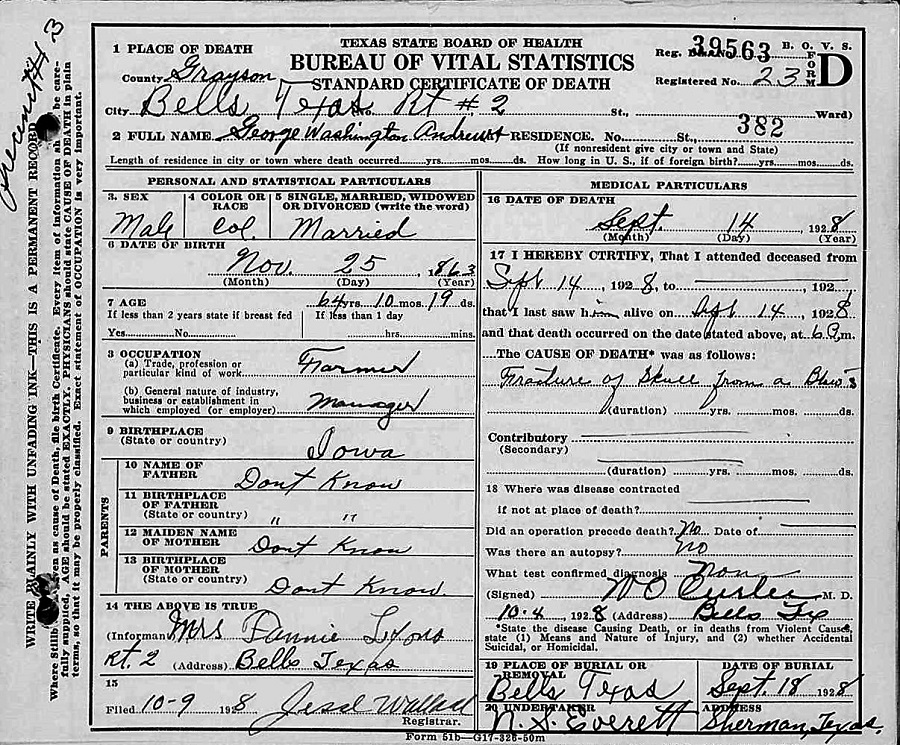 TEXAS STATE BOARD OF HEALTH
BUREAU OF VITAL STATISTICS
STANDARD CERTIFICATE OF DEATH
Reg. 39563 B. O. V. S.
FORM D
Registered No. 23
1 PLACE OF DEATH
County Grayson
City Bells Texas No. Rt # 2 St., Ward)
382
2 FULL NAME George Washington Andrews RESIDENCE. No. St.,
(If nonresident give city or town and State)
Length of residence in city or town where death occurred yrs. mos. ds. How long in U. S., if of foreign birth? yrs. mos. ds.
PERSONAL AND STATISTICAL PARTICULARS
3. SEX 4 COLOR OR RACE 5 SINGLE, MARRIED, WIDOWED OR DIVORCED (write the word)
Male Col. Married
6 DATE OF BIRTH
Nov. 25, 1863
(Month) (Day) (Year)
7 AGE 64 yrs. 10 mos. 19 ds.
If less than 2 years state if breast fed If less than 1 day
Yes No hrs. mins.
8 OCCUPATION
(a) Trade, profession or
particular kind of work Farmer
(b) General nature of industry,
business or establishment in
which employed (or employer) Manager
9 BIRTHPLACE
(State or country) Iowa
PARENTS
10 NAME OF
FATHER Dont Know
11 BIRTHPLACE
OF FATHER
(State or country) " "
12 MAIDEN NAME
OF MOTHER Dont Know
13 BIRTHPLACE
OF MOTHER
(State or country) Dont Know.
14 THE ABOVE IS TRUE
(Informan Mrs Fannie Lyons
Rt. 2 (Address) Bells Texas
15
Filed 10-9 1928 Jess Wallace
Registrar.
MEDICAL PARTICULARS
16 DATE OF DEATH
Sept. 14, 1928
(Month) (Day) (Year)
17 I HEREBY CTRTIFY, That I attended deceased from
Sept 14, 1928, to , 192
that I last saw him alive on Sept 14, 1928
and that death occurred on the date stated above, at 6 m.
The CAUSE OF DEATH* was as follows:
Fracture of Skull from a Blow
(duration) yrs. mos. ds.
Contributory
(Secondary)
(duration) yrs. mos. ds.
18 Where was disease contracted
if not at place of death?
Did an operation precede death? No Date of
Was there an autopsy? No
What test confirmed diagnosis None
(Signed) M. D.
10-4 1928 (Address) Bells Tex
*State the disease Causing Death, or in deaths from Violent Causes,
state (1) Means and Nature of Injury, and (2) whether Accidental
Suicidal, or Homicidal.
19 PLACE OF BURIAL OR
REMOVAL DATE OF BURIAL
Bells Texas Sept. 18 1928
20 UNDERTAKER ADDRESS
N. S. Everett Sherman, Texas.
Form 51b—G17-328-50m
WRITE PLAINLY WITH UNFADING INK—THIS IS A PERMANENT RECORD